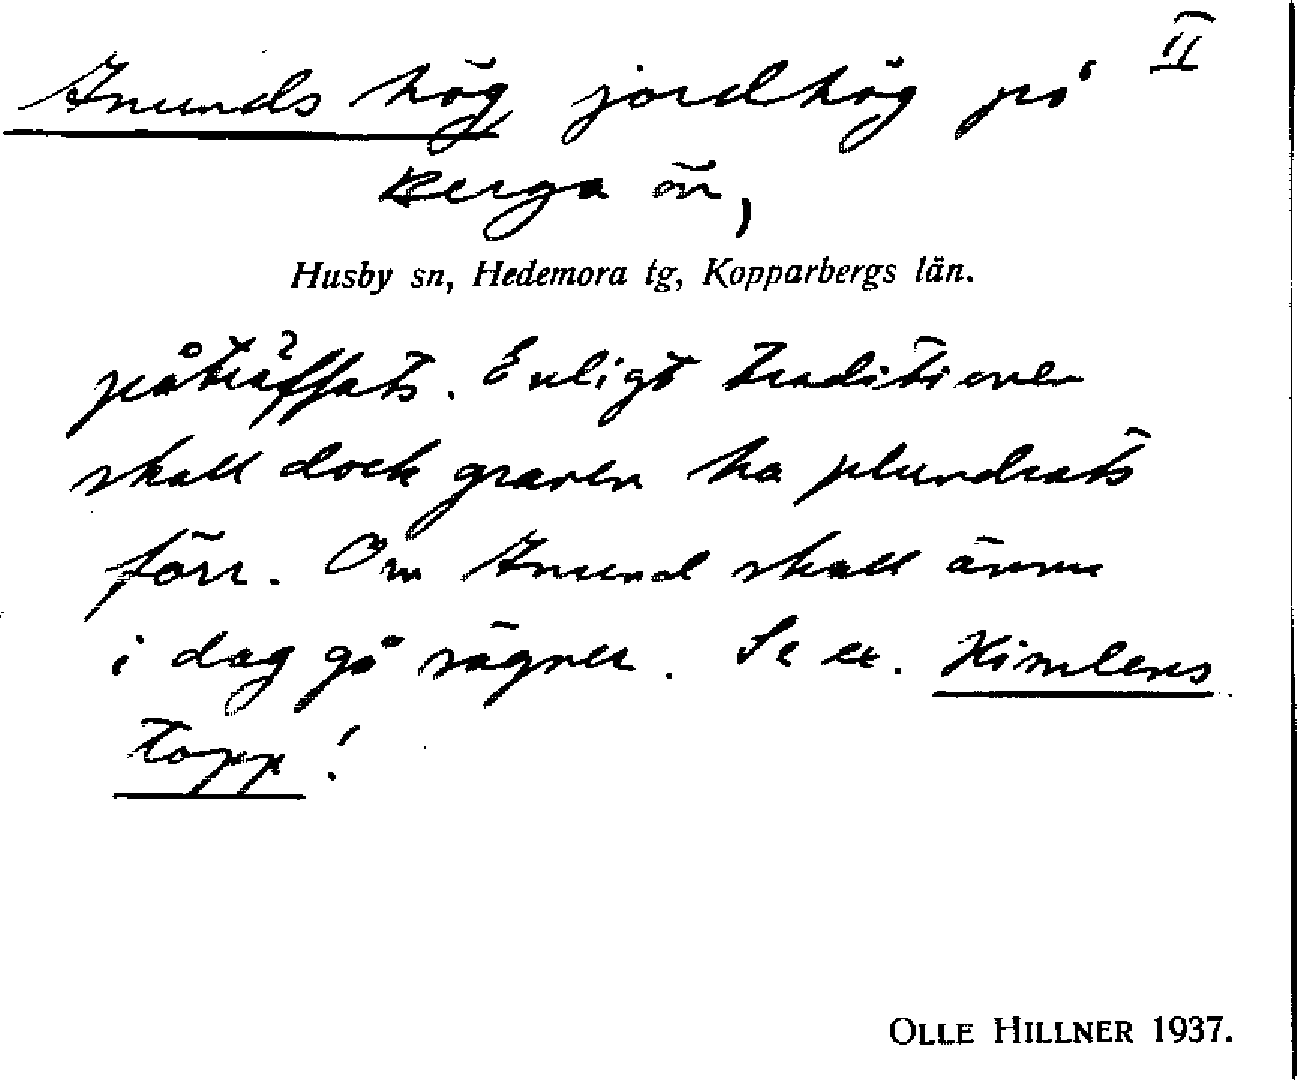 Anunds hög, jordhög på II
Berga ör,
Husby sn, Hedemora tg, Kopparbergs län.
påträffats. Enligt traditionen
skall dock graven ha plundrats
förr. Om Anund skall ännu
i dag gå sägner. Se ex. Himlens
topp!
OLLE HILLNER 1937.